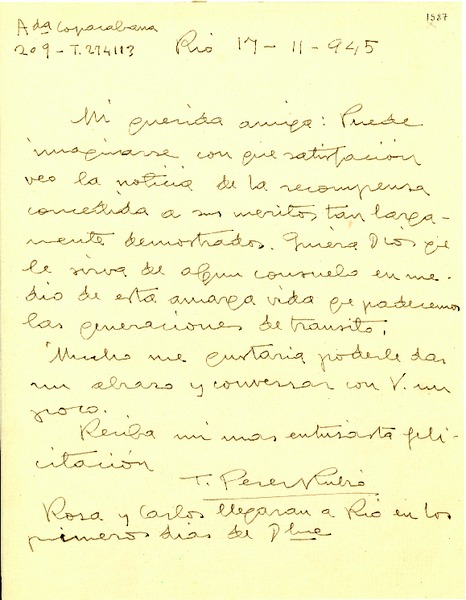 1587
Ada Copacabana
209-T.274113 Rio 17-11-945
Mi querida amiga: Puede
imaginarse con que satisfacción
veo la noticia de la recompensa
concedida a sus meritos tan larga-
mente demostrados. Quiera Dios qe
le sirva de algun consuelo en me-
dio de esta amarga vida qe padecemos
las generaciones de transito!
Mucho me gustaria poderle dar
un abrazo y conversar con V. un
poco.
Reciba mi mas entusiasta feli-
citación
T. Perez Rubio
Rosa y Carlos llegaran a Rio en los
primeros dias de Dbre